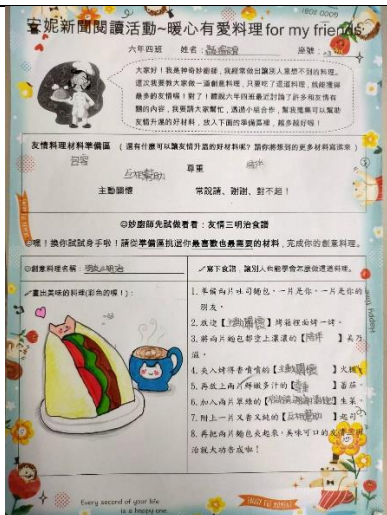 安妮新聞閱讀活動~暖心有愛料理 for my friends
六年四班 姓名： 座號：
大家好！我是神奇妙廚師，我經常做出讓別人意想不到的料理。
這次我要教大家做一道創意料理，只要吃了這道料理，就能獲得
最多的友情喔！對了！聽說六年四班最近討論了許多和友情有
關的內容，我要請大家幫忙，透過小組合作，幫我蒐集可以幫助
友情升溫的好材料，放入下面的準備區裡，越多越好喔！
友情料理材料準備區 ( 還有什麼可以讓友情升溫的好材料呢？請你將想到的更多材料寫進來 )
包容 尊重 陪伴
互相幫助
主動關懷 常說請、謝謝、對不起！
☺妙廚師先試做看看：友情三明治食譜
☺嘿！換你試試身手啦！請從準備區挑選你最喜歡也最需要的材料，完成你的創意料理。
☺創意料理名稱： 三明治
畫出美味的料理(彩色的喔！)：
寫下食譜，讓別人也能學會怎麼做這道料理。
1. 準備兩片吐司麵包，一片是你，一片是你的
朋友。
2. 放進【主動關懷】烤箱裡面烤一烤。
3. 將兩片麵包都塗上濃濃的【陪伴】美乃
滋。
4. 夾入烤得香噴噴的【主動關懷】火腿。
5. 再放上兩片鮮嫩多汁的【尊重】番茄。
6. 加入兩片翠綠的【 】生菜。
7. 附上一片又香又純的【互相幫助】起司。
8. 再把兩片麵包夾起來，美味可口的友情三明
治就大功告成啦！
Every second of your life
is a happy one.
ENJOY THE MOMENT